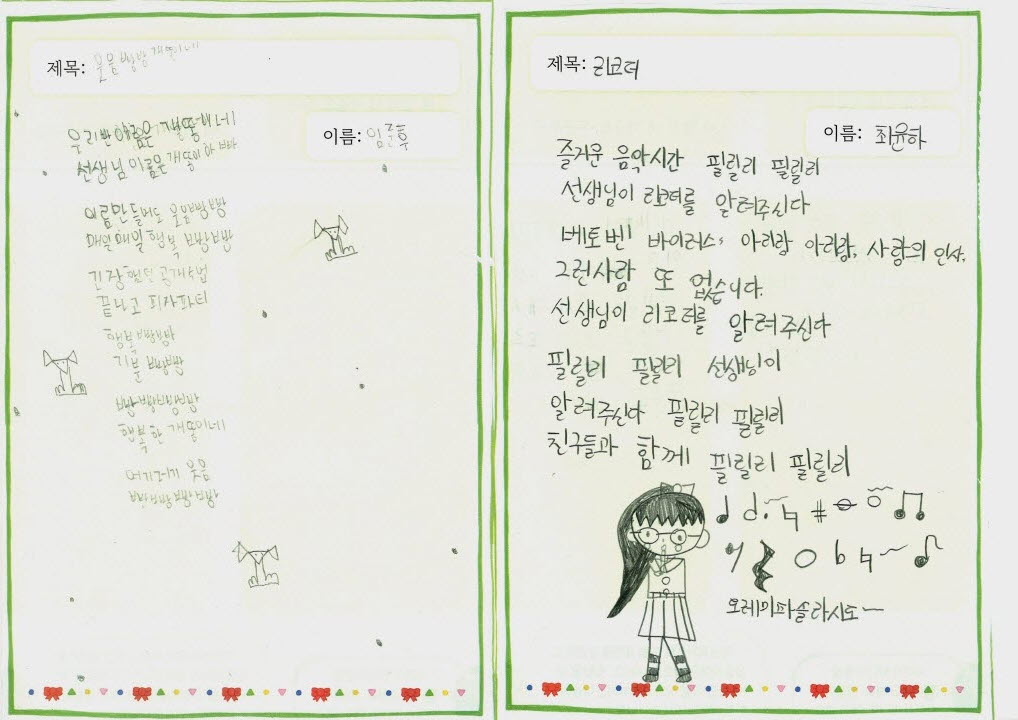 제목: 웃음빵빵 개똥이네
이름: 임준후
우리반 이름은 개똥이네
선생님 이름은 개똥이 아빠
이름만 들어도 웃음빵빵
매일매일 행복 빵빵
긴장했던 공개수업
끝나고 피자파티
행복빵빵
기분 빵빵
빵빵빵빵
행복한 개똥이네
여기저기 웃음
빵빵빵빵빵
제목: 리코더
이름: 최윤하
즐거운 음악시간 필릴리 필릴리
선생님이 리코더를 알려주신다
베토벤 바이러스, 아리랑 아리랑, 사랑의 인사,
그런사람 또 없습니다.
선생님이 리코더를 알려주신다
필릴리 필릴리 선생님이
알려주신다 필릴리 필릴리
친구들과 함께 필릴리 필릴리
도레미파솔라시도~